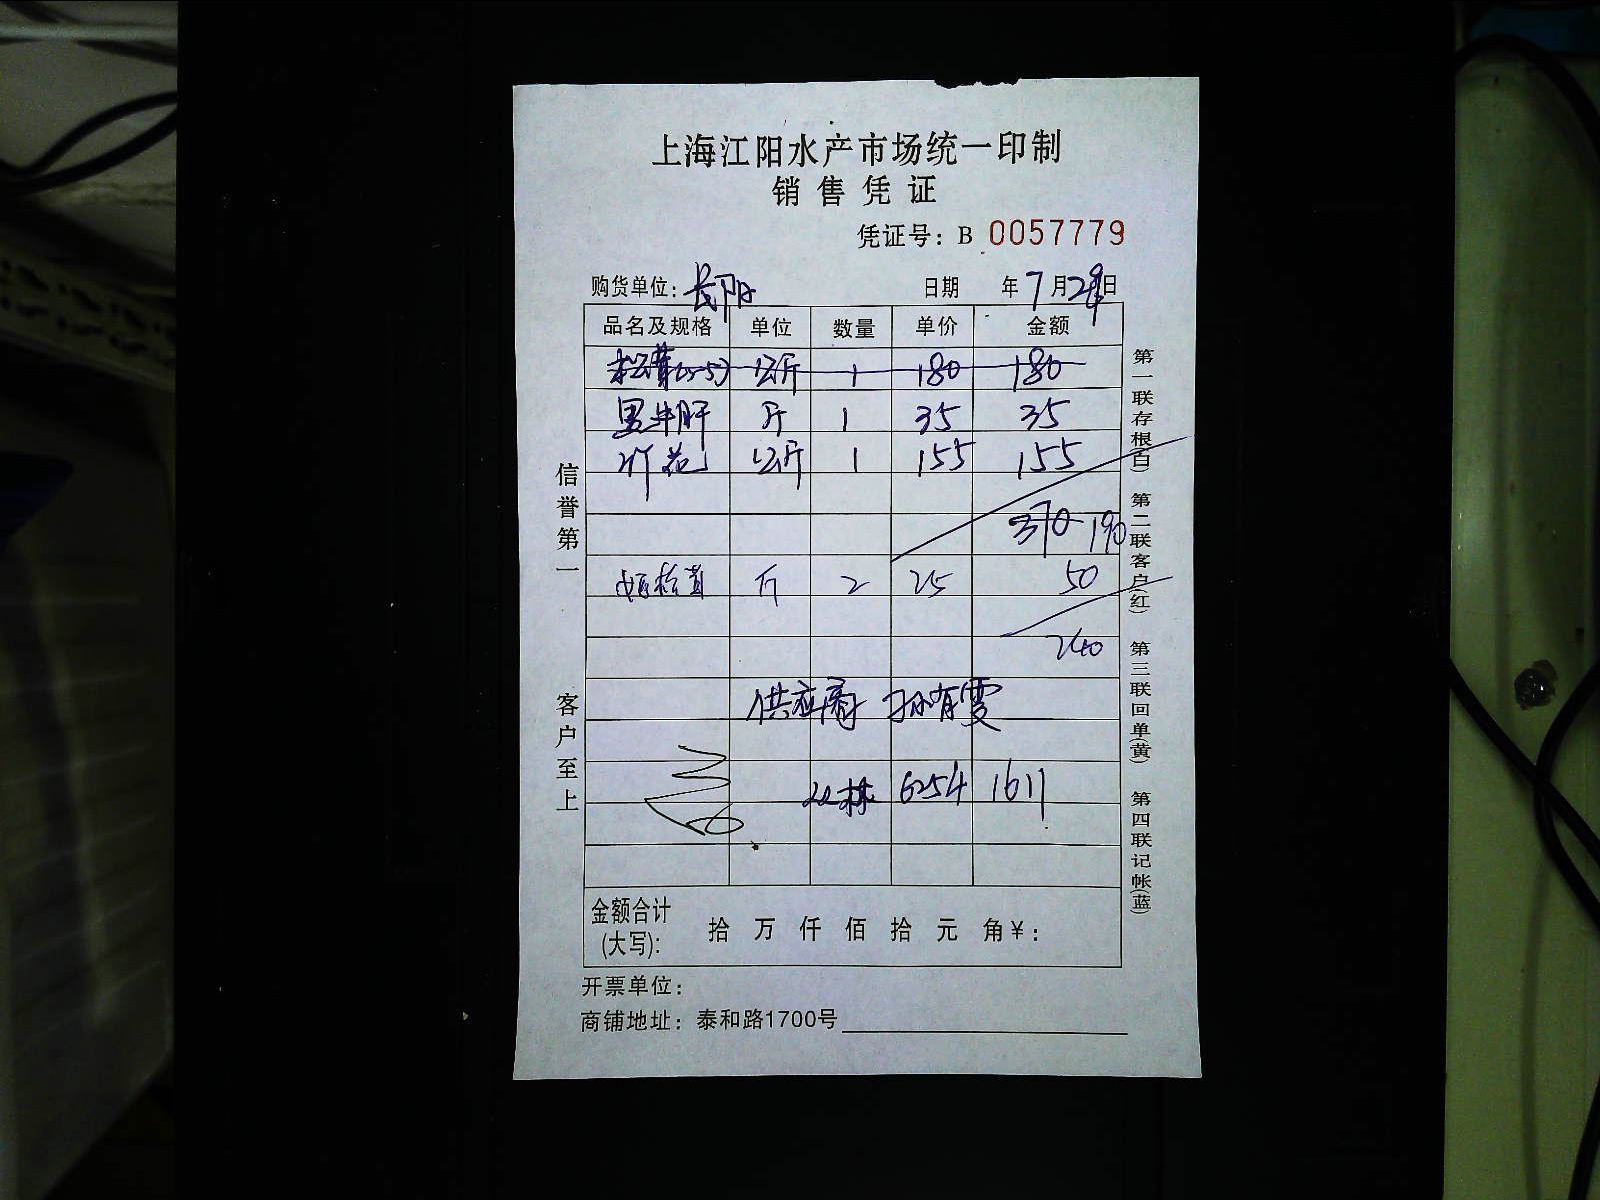 上海江阳水产市场统一印制
销售凭证
凭证号：B 0057779
购货单位：长阳 日期 年7月29日
品名及规格 单位 数量 单价 金额
松茸(3-5) 公斤 1 180 180
黑牛肝 斤 1 35 35
竹花 公斤 1 155 155
370 190
姬松茸 斤 2 25 50
240
供应商 孙有雯
6254 1611
金额合计
(大写): 拾 万 仟 佰 拾 元 角¥：
开票单位：
商铺地址：泰和路1700号
信誉第一 客户至上
第一联存根(白) 第二联客户(红) 第三联回单(黄) 第四联记帐(蓝)